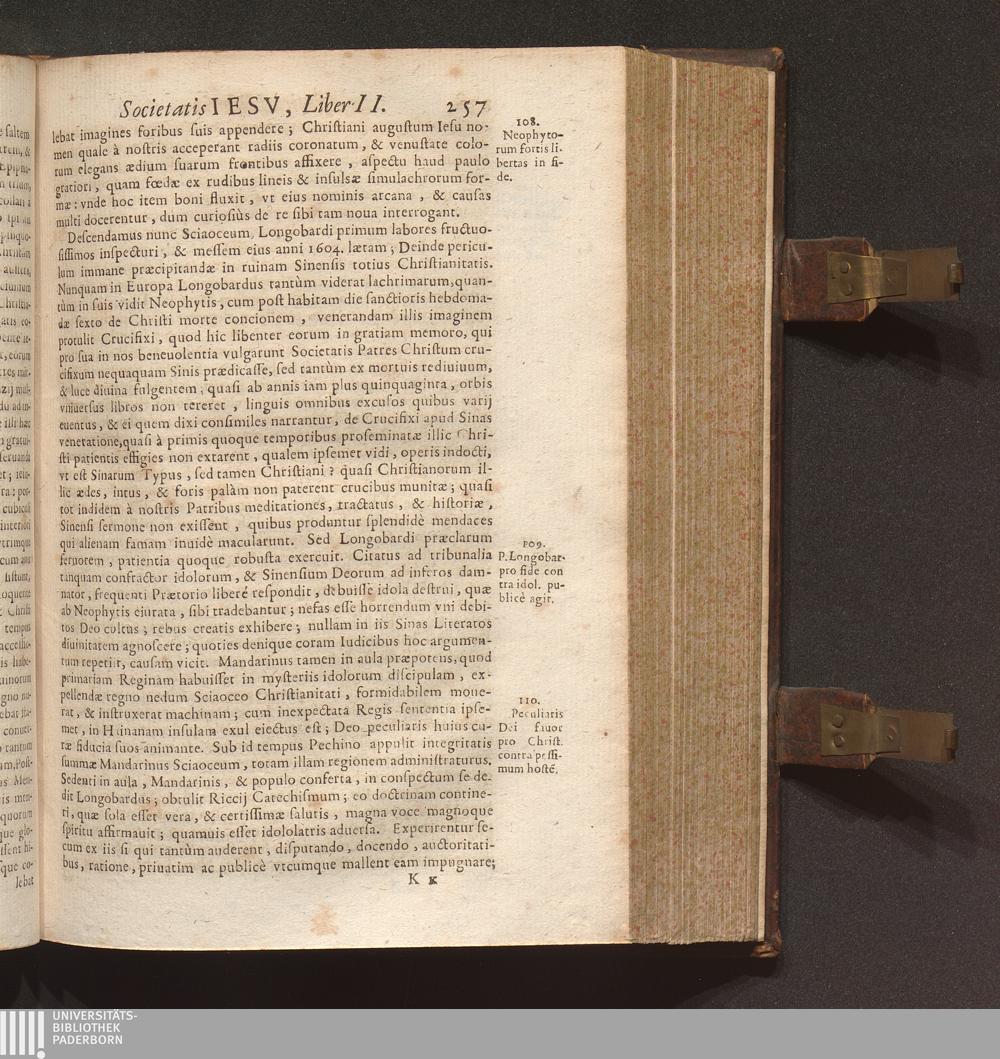 Societatis IESV, Liber II. 257
lebat imagines foribus suis appendere; Christiani augustum Iesu no-
men quale à nostris acceperant radiis coronatum, & venustate colo-
rum elegans ædium suarum frontibus affixere, aspectu haud paulo
gratiori, quam fœdæ ex rudibus lineis & insulsæ simulachrorum for-
mæ: vnde hoc item boni fluxit, vt eius nominis arcana, & causas
multi docerentur, dum curiosiùs de re sibi tam noua interrogant.
108.
Neophyto-
rum fortis li-
bertas in fi-
de.
Descendamus nunc Sciaoceum, Longobardi primum labores fructuo-
sissimos inspecturi, & messem eius anni 1604. lætam; Deinde pericu-
lum immane præcipitandæ in ruinam Sinensis totius Christianitatis.
Nunquam in Europa Longobardus tantùm viderat lachrimarum, quan-
tùm in suis vidit Neophytis, cum post habitam die sanctioris hebdoma-
dæ sexto de Christi morte concionem, venerandam illis imaginem
protulit Crucifixi, quod hic libenter eorum in gratiam memoro, qui
pro sua in nos beneuolentia vulgarunt Societatis Patres Christum cru-
cifixum nequaquam Sinis prædicasse, sed tantùm ex mortuis rediuiuum,
& luce diuina fulgentem; quasi ab annis iam plus quinquaginta, orbis
vniuersus libros non tereret, linguis omnibus excusos quibus varij
euentus, & ei quem dixi consimiles narrantur, de Crucifixi apud Sinas
venetatione, quasi à primis quoque temporibus proseminatæ illic Chri-
sti patientis effigies non extarent, qualem ipsemet vidi, operis indocti,
vt est Sinarum Typus, sed tamen Christiani? quasi Christianorum il-
lic ædes, intus, & foris palàm non paterent crucibus munitæ; quasi
tot indidem à nostris Patribus meditationes, tractatus, & historiæ,
Sinensi sermone non exissent, quibus produntur splendidè mendaces
qui alienam famam inuidè macularunt. Sed Longobardi præclarum
feruorem, patientia quoque robusta exercuit. Citatus ad tribunalia
tanquam confractor idolorum, & Sinensium Deorum ad inferos dam-
nator, frequenti Prætorio liberé respondit, debuisse idola destrui, quæ
ab Neophytis eiurata, sibi tradebantur; nefas esse horrendum vni debi-
tos Deo cultus; rebus creatis exhibere; nullam in iis Sinas Literatos
diuinitatem agnoscere; quoties denique coram Iudicibus hoc argumen-
tum repetiit, causam vicit. Mandarinus tamen in aula præpotens, quod
primariam Reginam habuisset in mysteriis idolorum discipulam, ex-
pellendæ regno nedum Sciaoceo Christianitati, formidabilem moue-
rat, & instruxerat machinam; cum inexpectata Regis sententia ipse-
met, in Hainanam insulam exul eiectus est; Deo peculiaris huius cu-
ræ fiducia suos animante. Sub id tempus Pechino appulit integritatis
summæ Mandarinus Sciaoceum, totam illam regionem administraturus.
Sedenti in aula, Mandarinis, & populo conferta, in conspectum se de-
dit Longobardus; obtulit Riccij Catechismum; eo doctrinam contine-
ri, quæ sola esset vera, & certissimæ salutis, magna voce magnoque
spiritu affirmauit; quamuis esset idololatris aduersa. Experirentur se-
cum ex iis si qui tantùm auderent, disputando, docendo, auctoritati-
bus, ratione, priuatim ac publicè vtcumque mallent eam impugnare;
109.
P. Longobar-
pro fide con
tra idol. pu-
blicè agit.
110.
Peculiaris
Dei fauor
pro Christ.
contra pessi-
mum hostē.
K K
UNIVERSITÄTS-
BIBLIOTHEK
PADERBORN